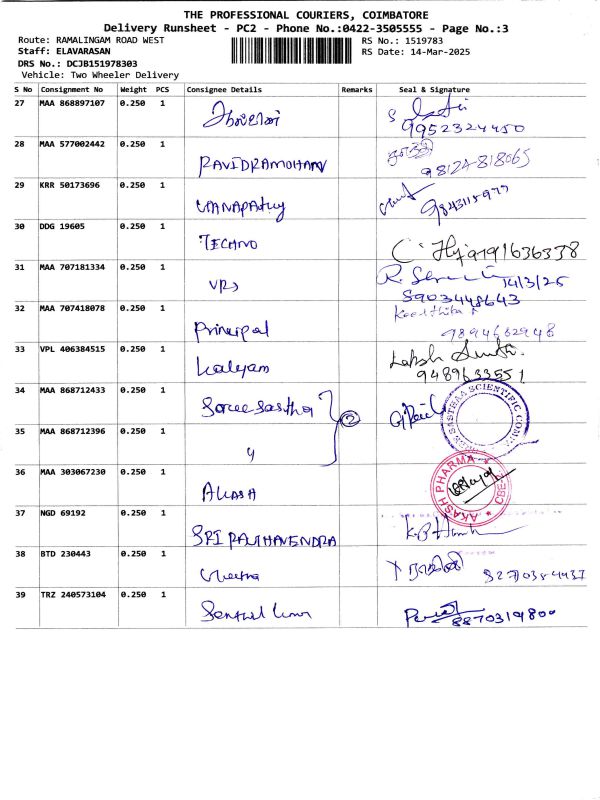 THE PROFESSIONAL COURIERS, COIMBATORE
Delivery Runsheet - PC2 - Phone No.:0422-3505555 - Page No.:3
Route: RAMALINGAM ROAD WEST RS No.: 1519783
Staff: ELAVARASAN RS Date: 14-Mar-2025
DRS No.: DCJB151978303
Vehicle: Two Wheeler Delivery
S No Consignment No Weight PCS Consignee Details Remarks Seal & Signature
27 MAA 868897107 0.250 1
9952324450
28 MAA 577002442 0.250 1 RAVIDRAMOHAN
98124-818065
29 KRR 50173696 0.250 1 GANAPATHY
30 DDG 19605 0.250 1 TECHNO
31 MAA 707181334 0.250 1 VRS 14/3/25
5903448643
32 MAA 707418078 0.250 1 Principal
7894662948
33 VPL 406384515 0.250 1 Kalyam
9489633551
34 MAA 868712433 0.250 1 Soree sastha 2
35 MAA 868712396 0.250 1 "
36 MAA 303067230 0.250 1 AKASH AKASH PHARMA CBE
37 NGD 69192 0.250 1 SRI RAGHAVENDRA
38 BTD 230443 0.250 1
39 TRZ 240573104 0.250 1 Senthil
8870319800